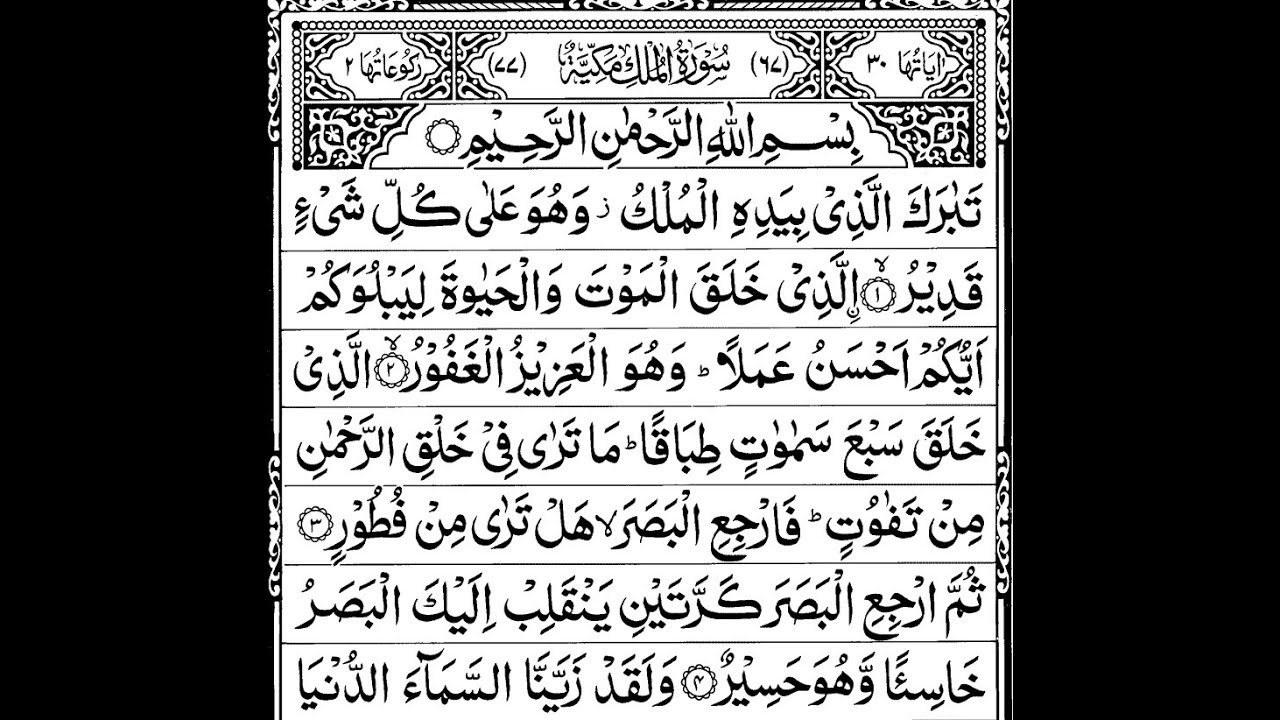 اٰيَاتُهَا ٣٠ (٦٧) سُوْرَةُ الْمُلْكِ مَكِّيَّةٌ (٧٧) رُكُوْعَاتُهَا ٢
بِسْمِ اللّٰهِ الرَّحْمٰنِ الرَّحِيْمِ ۝
تَبٰرَكَ الَّذِىْ بِيَدِهِ الْمُلْكُ ز وَهُوَ عَلٰى كُلِّ شَىْءٍ
قَدِيْرُ ۙ﴿١﴾ اۨلَّذِىْ خَلَقَ الْمَوْتَ وَالْحَيٰوةَ لِيَبْلُوَكُمْ
اَيُّكُمْ اَحْسَنُ عَمَلًا ؕ وَهُوَ الْعَزِيْزُ الْغَفُوْرُ ۙ﴿٢﴾ الَّذِىْ
خَلَقَ سَبْعَ سَمٰوٰتٍ طِبَاقًا ؕ مَا تَرٰى فِىْ خَلْقِ الرَّحْمٰنِ
مِنْ تَفٰوُتٍ ؕ فَارْجِعِ الْبَصَرَ ۙ هَلْ تَرٰى مِنْ فُطُوْرٍ ﴿٣﴾
ثُمَّ ارْجِعِ الْبَصَرَ كَرَّتَيْنِ يَنْقَلِبْ اِلَيْكَ الْبَصَرُ
خَاسِئًا وَّهُوَ حَسِيْرٌ ﴿٤﴾ وَلَقَدْ زَيَّنَّا السَّمَآءَ الدُّنْيَا